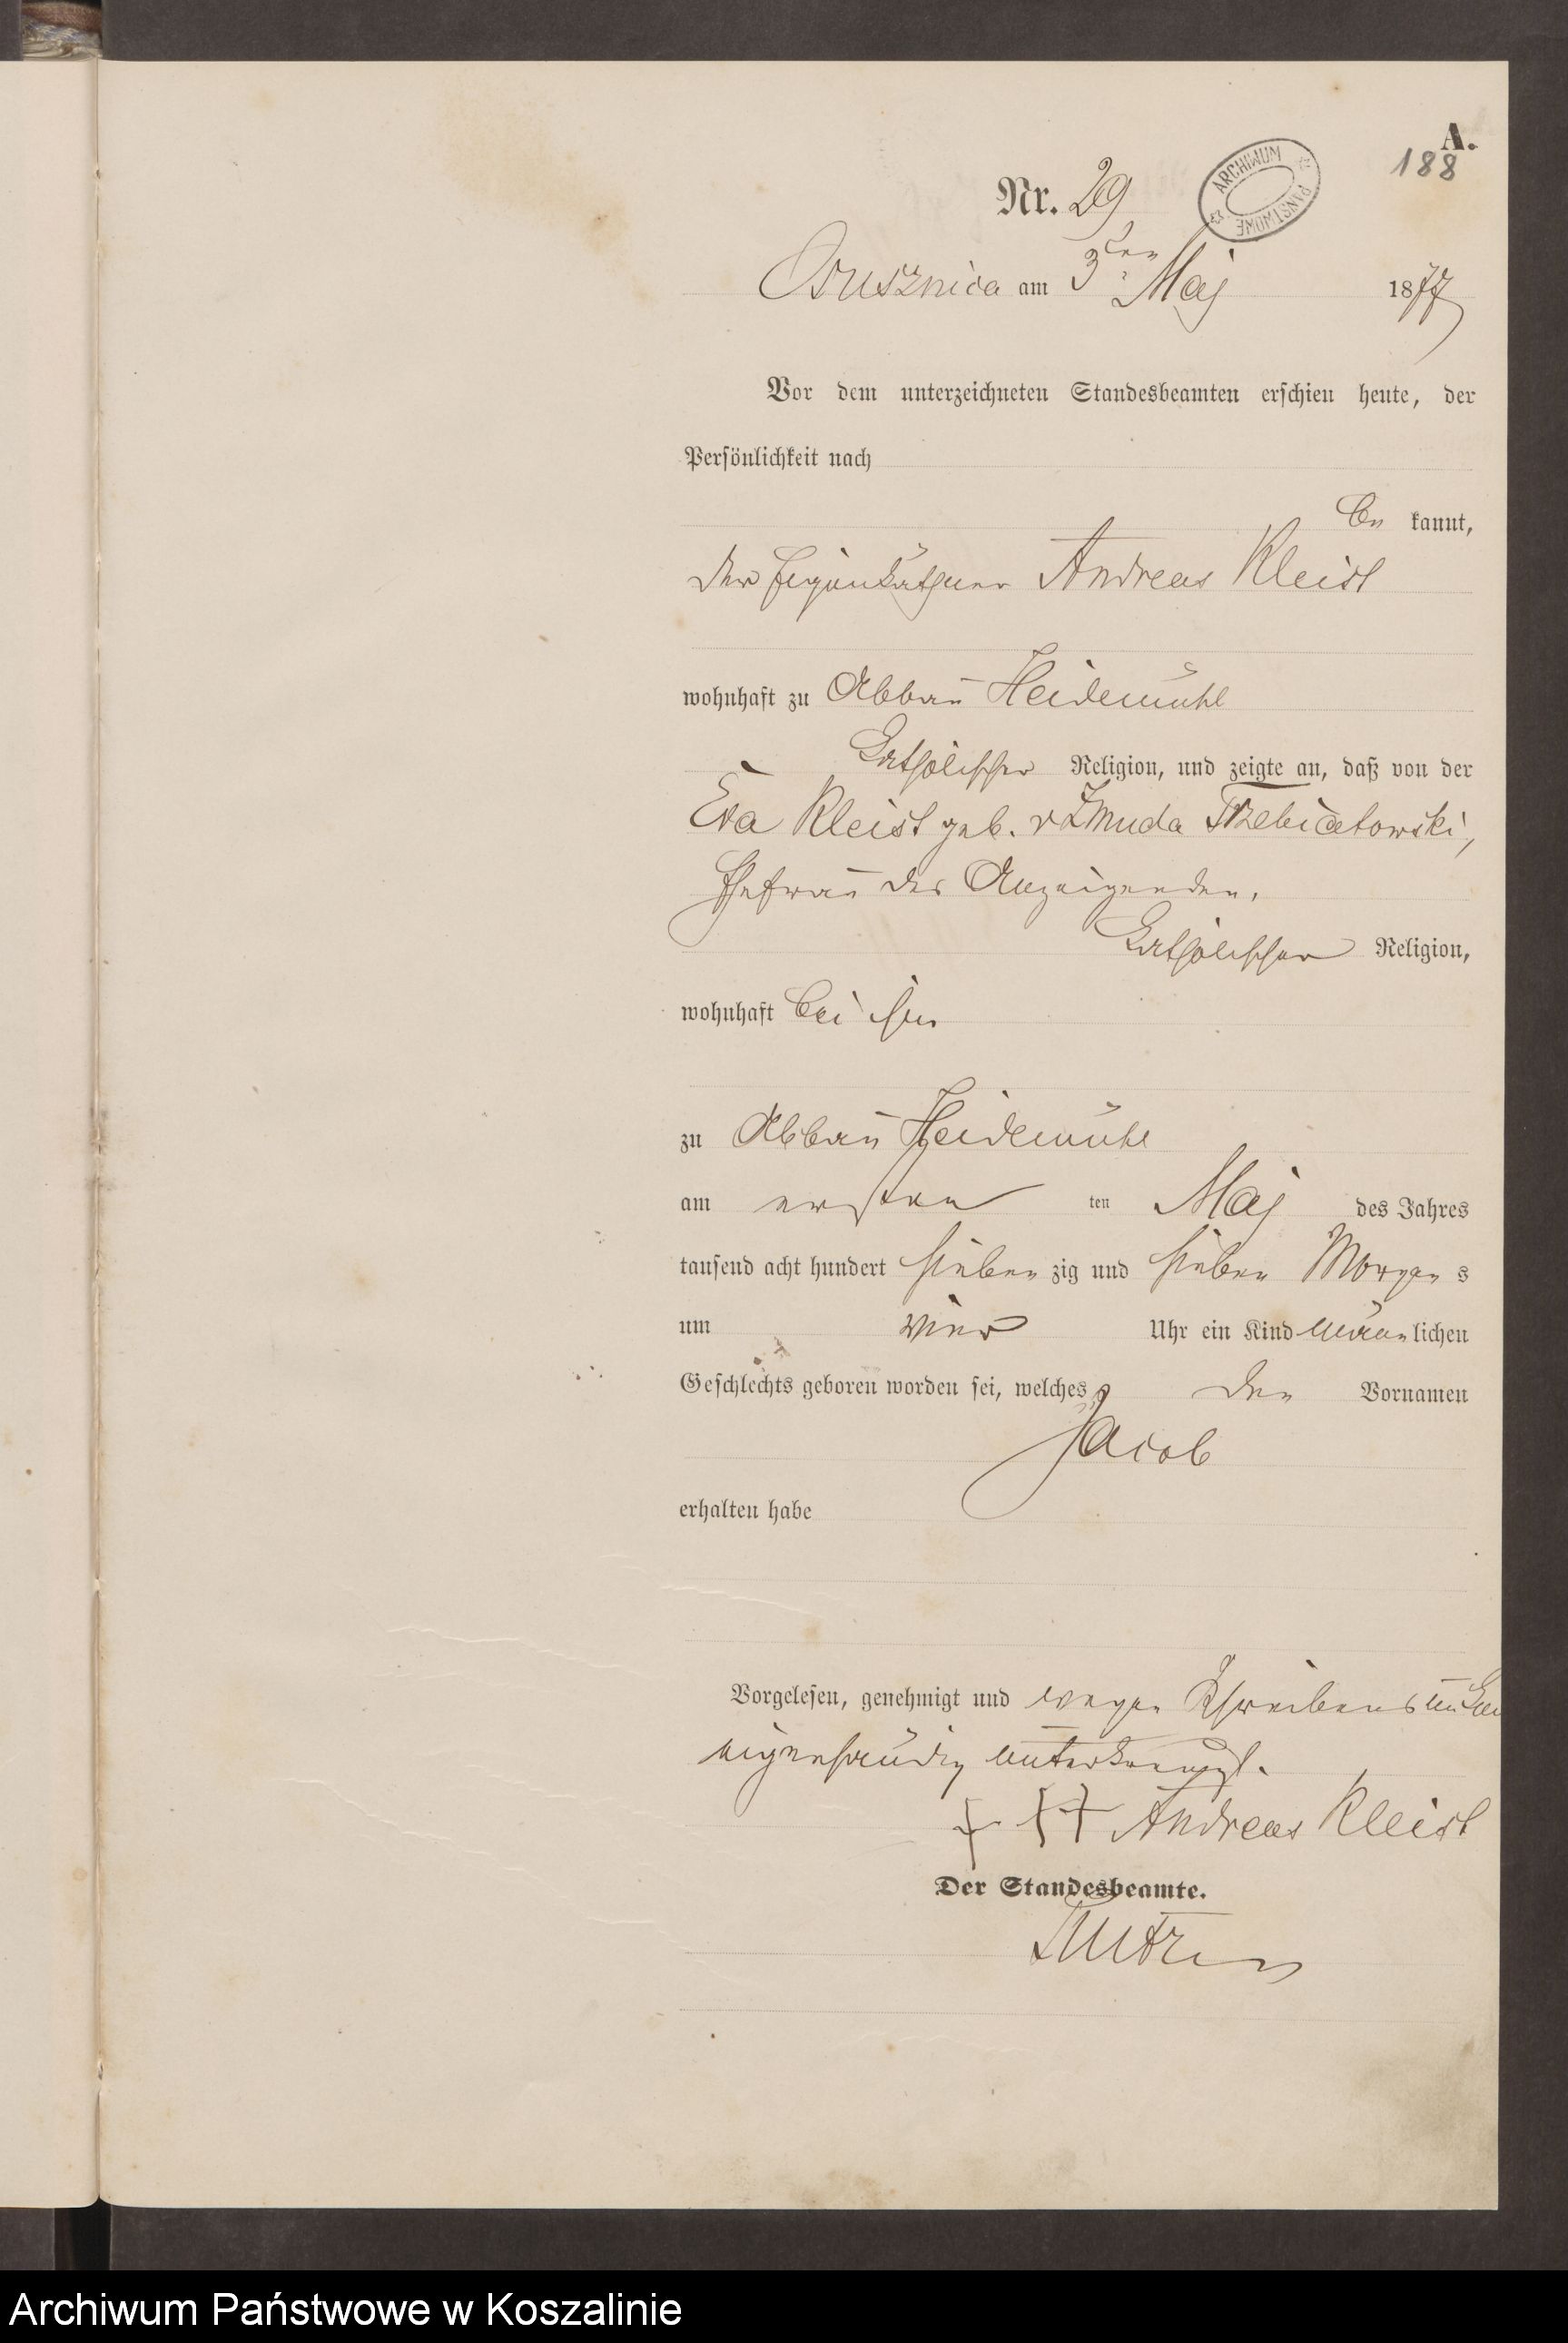 A.
188
ARCHIWUM PAŃSTWOWE
Nr. 29
Osusznica am 3ten Maj 1877
Vor dem unterzeichneten Standesbeamten erschien heute, der
Persönlichkeit nach
be kannt,
der Eigenkäthner Andreas Kleist
wohnhaft zu Abbau Heidemühl
katholischer Religion, und zeigte an, daß von der
Eva Kleist geb. v Zmuda Trzebiatowski,
Ehefrau des Anzeigenden,
katholischer Religion,
wohnhaft bei ihm
zu Abbau Heidemühl
am ersten ten Maj des Jahres
tausend acht hundert sieben zig und sieben Morgen s
um vier Uhr ein Kind männ lichen
Geschlechts geboren worden sei, welches den Vornamen
Jacob
erhalten habe
Vorgelesen, genehmigt und wegen Schreibens unkun
eigenhändig unterkreuzt.
+ + + Andreas Kleist
Der Standesbeamte.
Archiwum Państwowe w Koszalinie